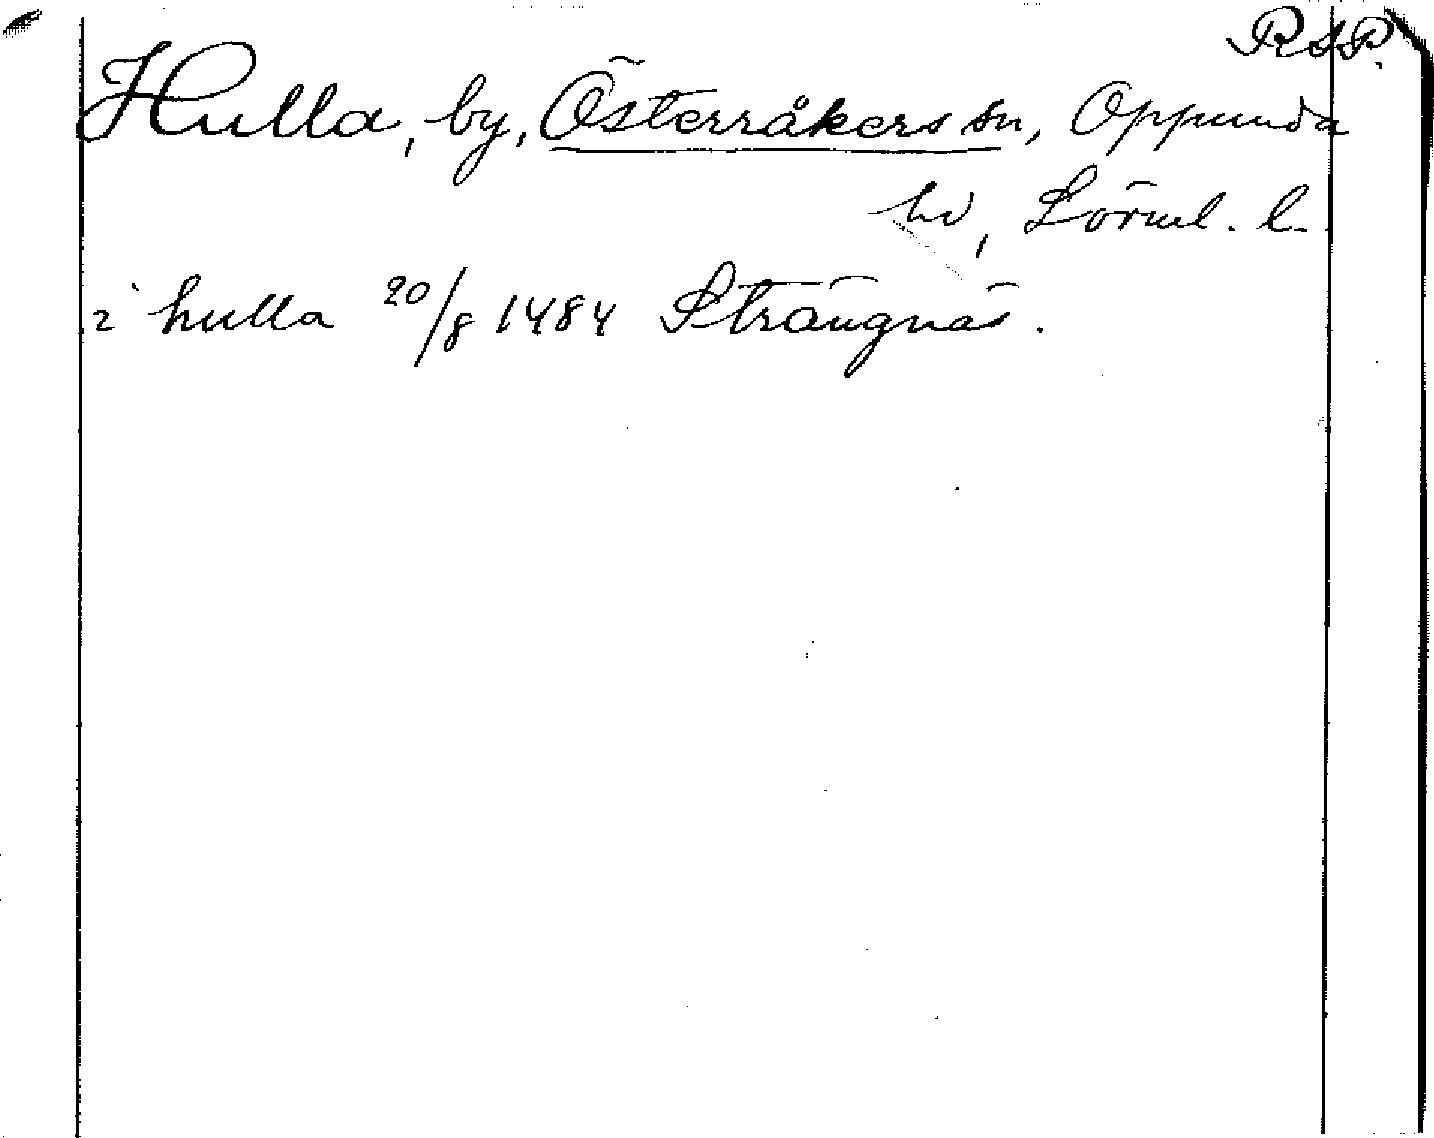 RAP.
Hulla, by, Österråkers sn, Oppunda
hd, Sörml. l.
i hulla 20/8 1484 Strängnäs.